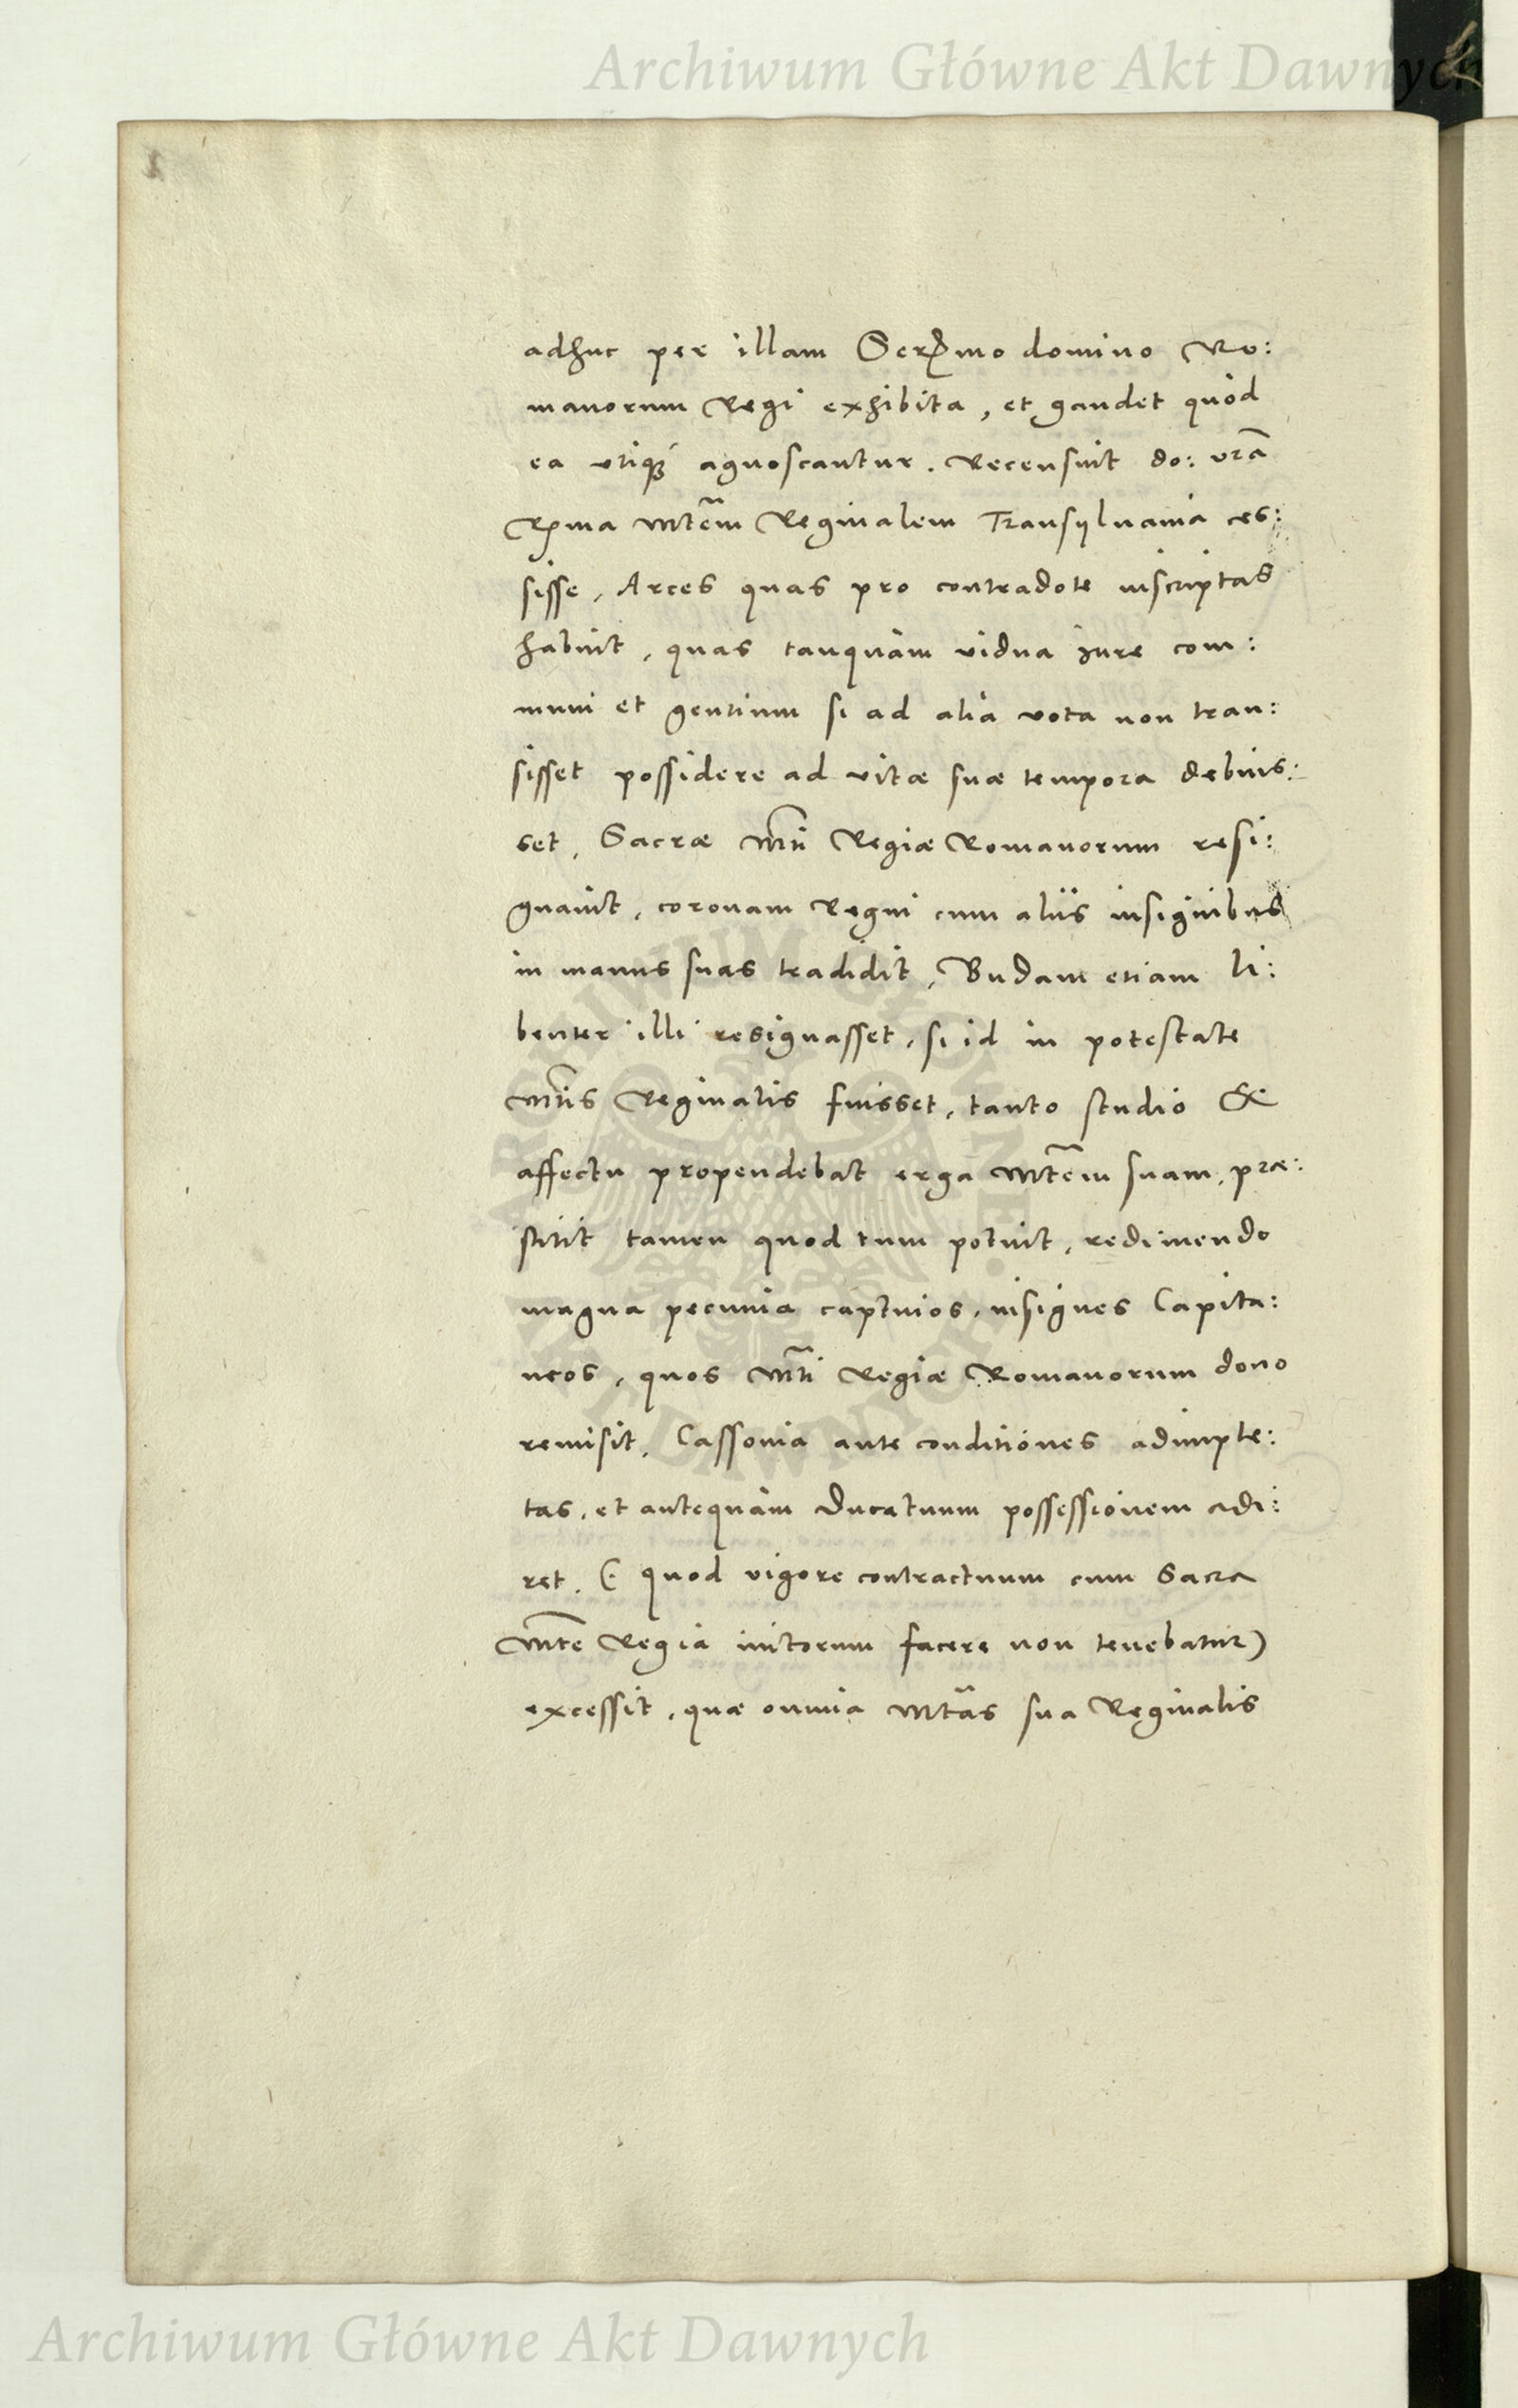 Archiwum Główne Akt Dawnych
adhuc per illam Sermo domino Ro:
manorum Regi exhibita, et gaudet quod
ea utiqꝫ agnoscantur. Recensuit do: vrā
Rma Mtem̄ Reginalem Transylvania ces:
sisse, Arces quas pro contradote inscriptas
habuit, quas tanquam vidua iure com:
muni et gentium si ad alia vota non tran:
sisset possidere ad vitæ suæ tempora debuis:
set, Sacræ Mti Regiæ Romanorum resi:
gnavit, coronam Regni cum aliis insignibus
in manus suas tradidit, Budam etiam li:
benter illi resignasset, si id in potestate
Mtis Reginalis fuisset, tanto studio &
affectu propendebat erga Mtem suam, præ:
stitit tamen quod tum potuit, redimendo
magna pecunia captivos, insignes Capita:
neos, quos Mti Regiæ Romanorum dono
remisit, Cassovia ante conditiones adimple:
tas, et antequam Ducatuum possessionem adi:
ret. (: quod vigore contractuum cum Sacra
Mte Regia initorum facere non tenebatur)
excessit, quæ omnia Mtas sua Reginalis
ARCHIWUM GŁÓWNE AKT DAWNYCH
Archiwum Główne Akt Dawnych